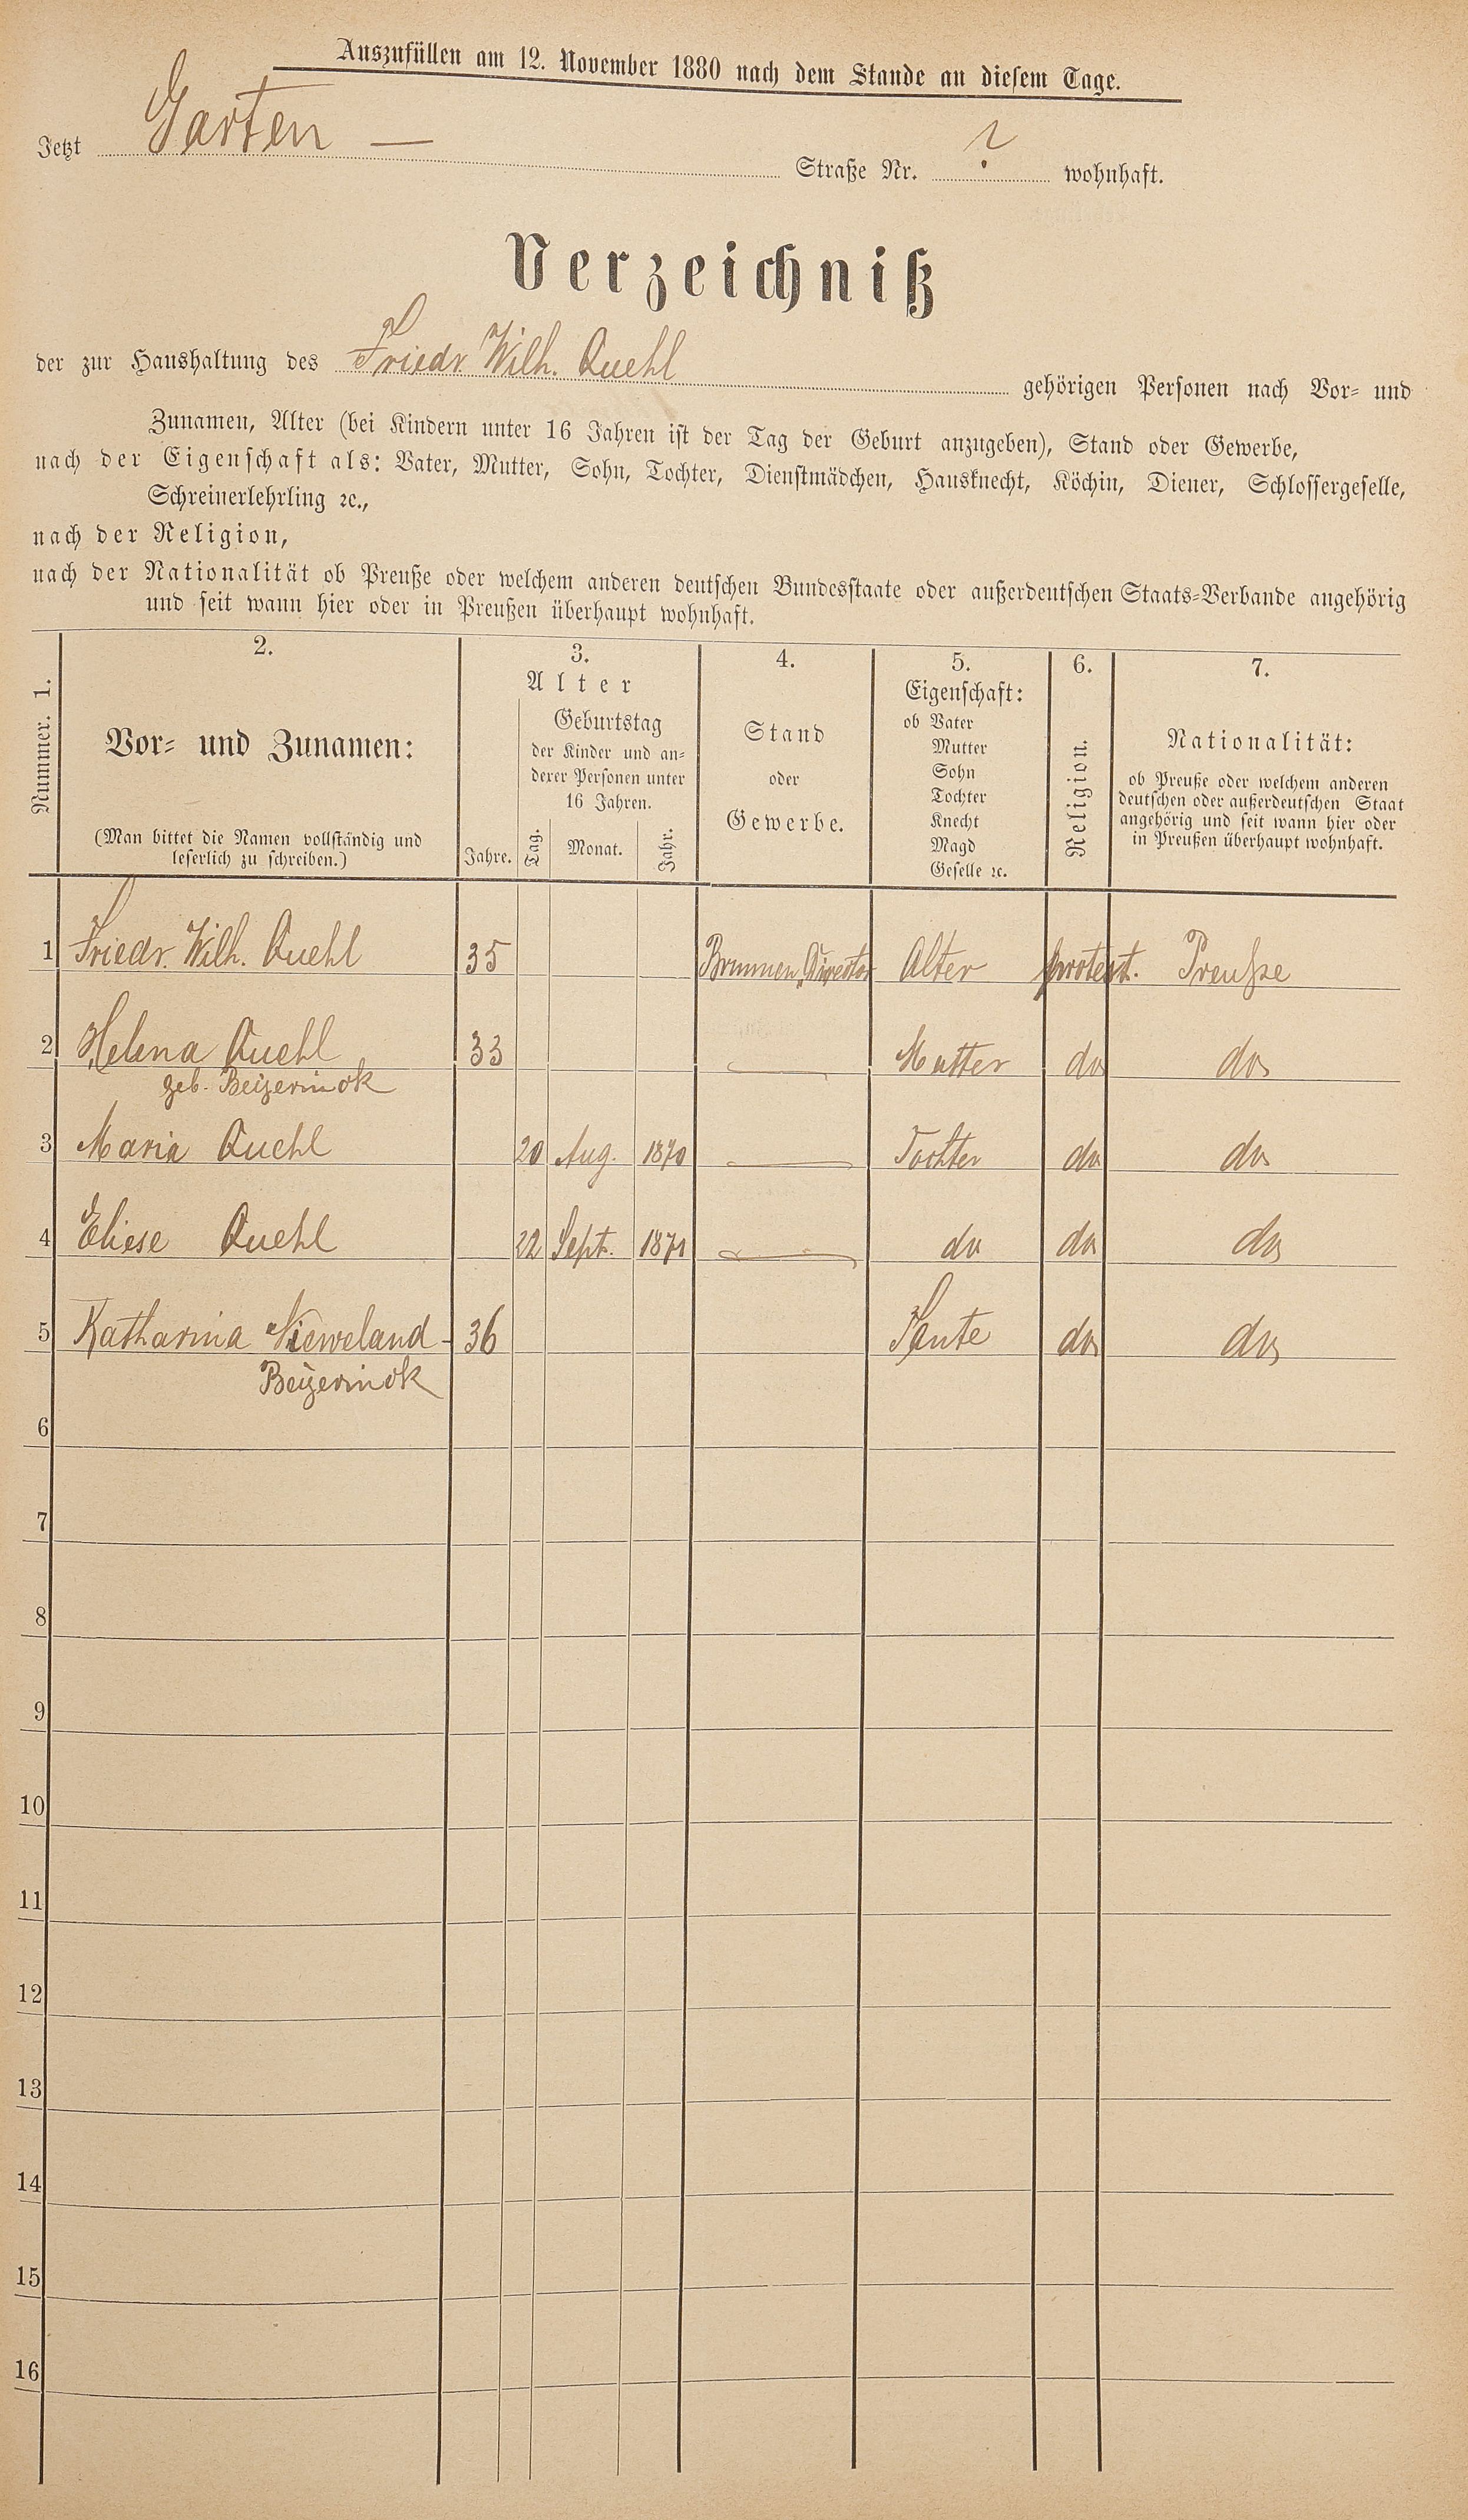 Auszufüllen am 12. November 1880 nach dem Stande an diesem Tage.
Jetzt Garten — Straße Nr. ? wohnhaft.
Verzeichniß
der zur Haushaltung des Friedr. Wilh. Quehl gehörigen Personen nach Vor- und
Zunamen, Alter (bei Kindern unter 16 Jahren ist der Tag der Geburt anzugeben), Stand oder Gewerbe,
nach der Eigenschaft als: Vater, Mutter, Sohn, Tochter, Dienstmädchen, Hausknecht, Köchin, Diener, Schlossergeselle,
Schreinerlehrling ꝛc.,
nach der Religion,
nach der Nationalität ob Preuße oder welchem anderen deutschen Bundesstaate oder außerdeutschen Staats-Verbande angehörig
und seit wann hier oder in Preußen überhaupt wohnhaft.
Nummer. 1.
2.
Vor- und Zunamen:
(Man bittet die Namen vollständig und
leserlich zu schreiben.)
3.
Alter
Jahre.
Geburtstag
der Kinder und an-
derer Personen unter
16 Jahren.
Tag. Monat. Jahr.
4.
Stand
oder
Gewerbe.
5.
Eigenschaft:
ob Vater
Mutter
Sohn
Tochter
Knecht
Magd
Geselle ꝛc.
6.
Religion.
7.
Nationalität:
ob Preuße oder welchem anderen
deutschen oder außerdeutschen Staat
angehörig und seit wann hier oder
in Preußen überhaupt wohnhaft.
1 Friedr. Wilh. Quehl 35 Brunnen Director Alter protest. Preuße
2 Helena Quehl 33 — Mutter do do
geb. Beijerinck
3 Maria Quehl 20 Aug. 1870 — Tochter do do
4 Eliese Quehl 22 Sept. 1871 — do do do
5 Katharina Nieweland- 36 Tante do do
Beijerinck
6
7
8
9
10
11
12
13
14
15
16